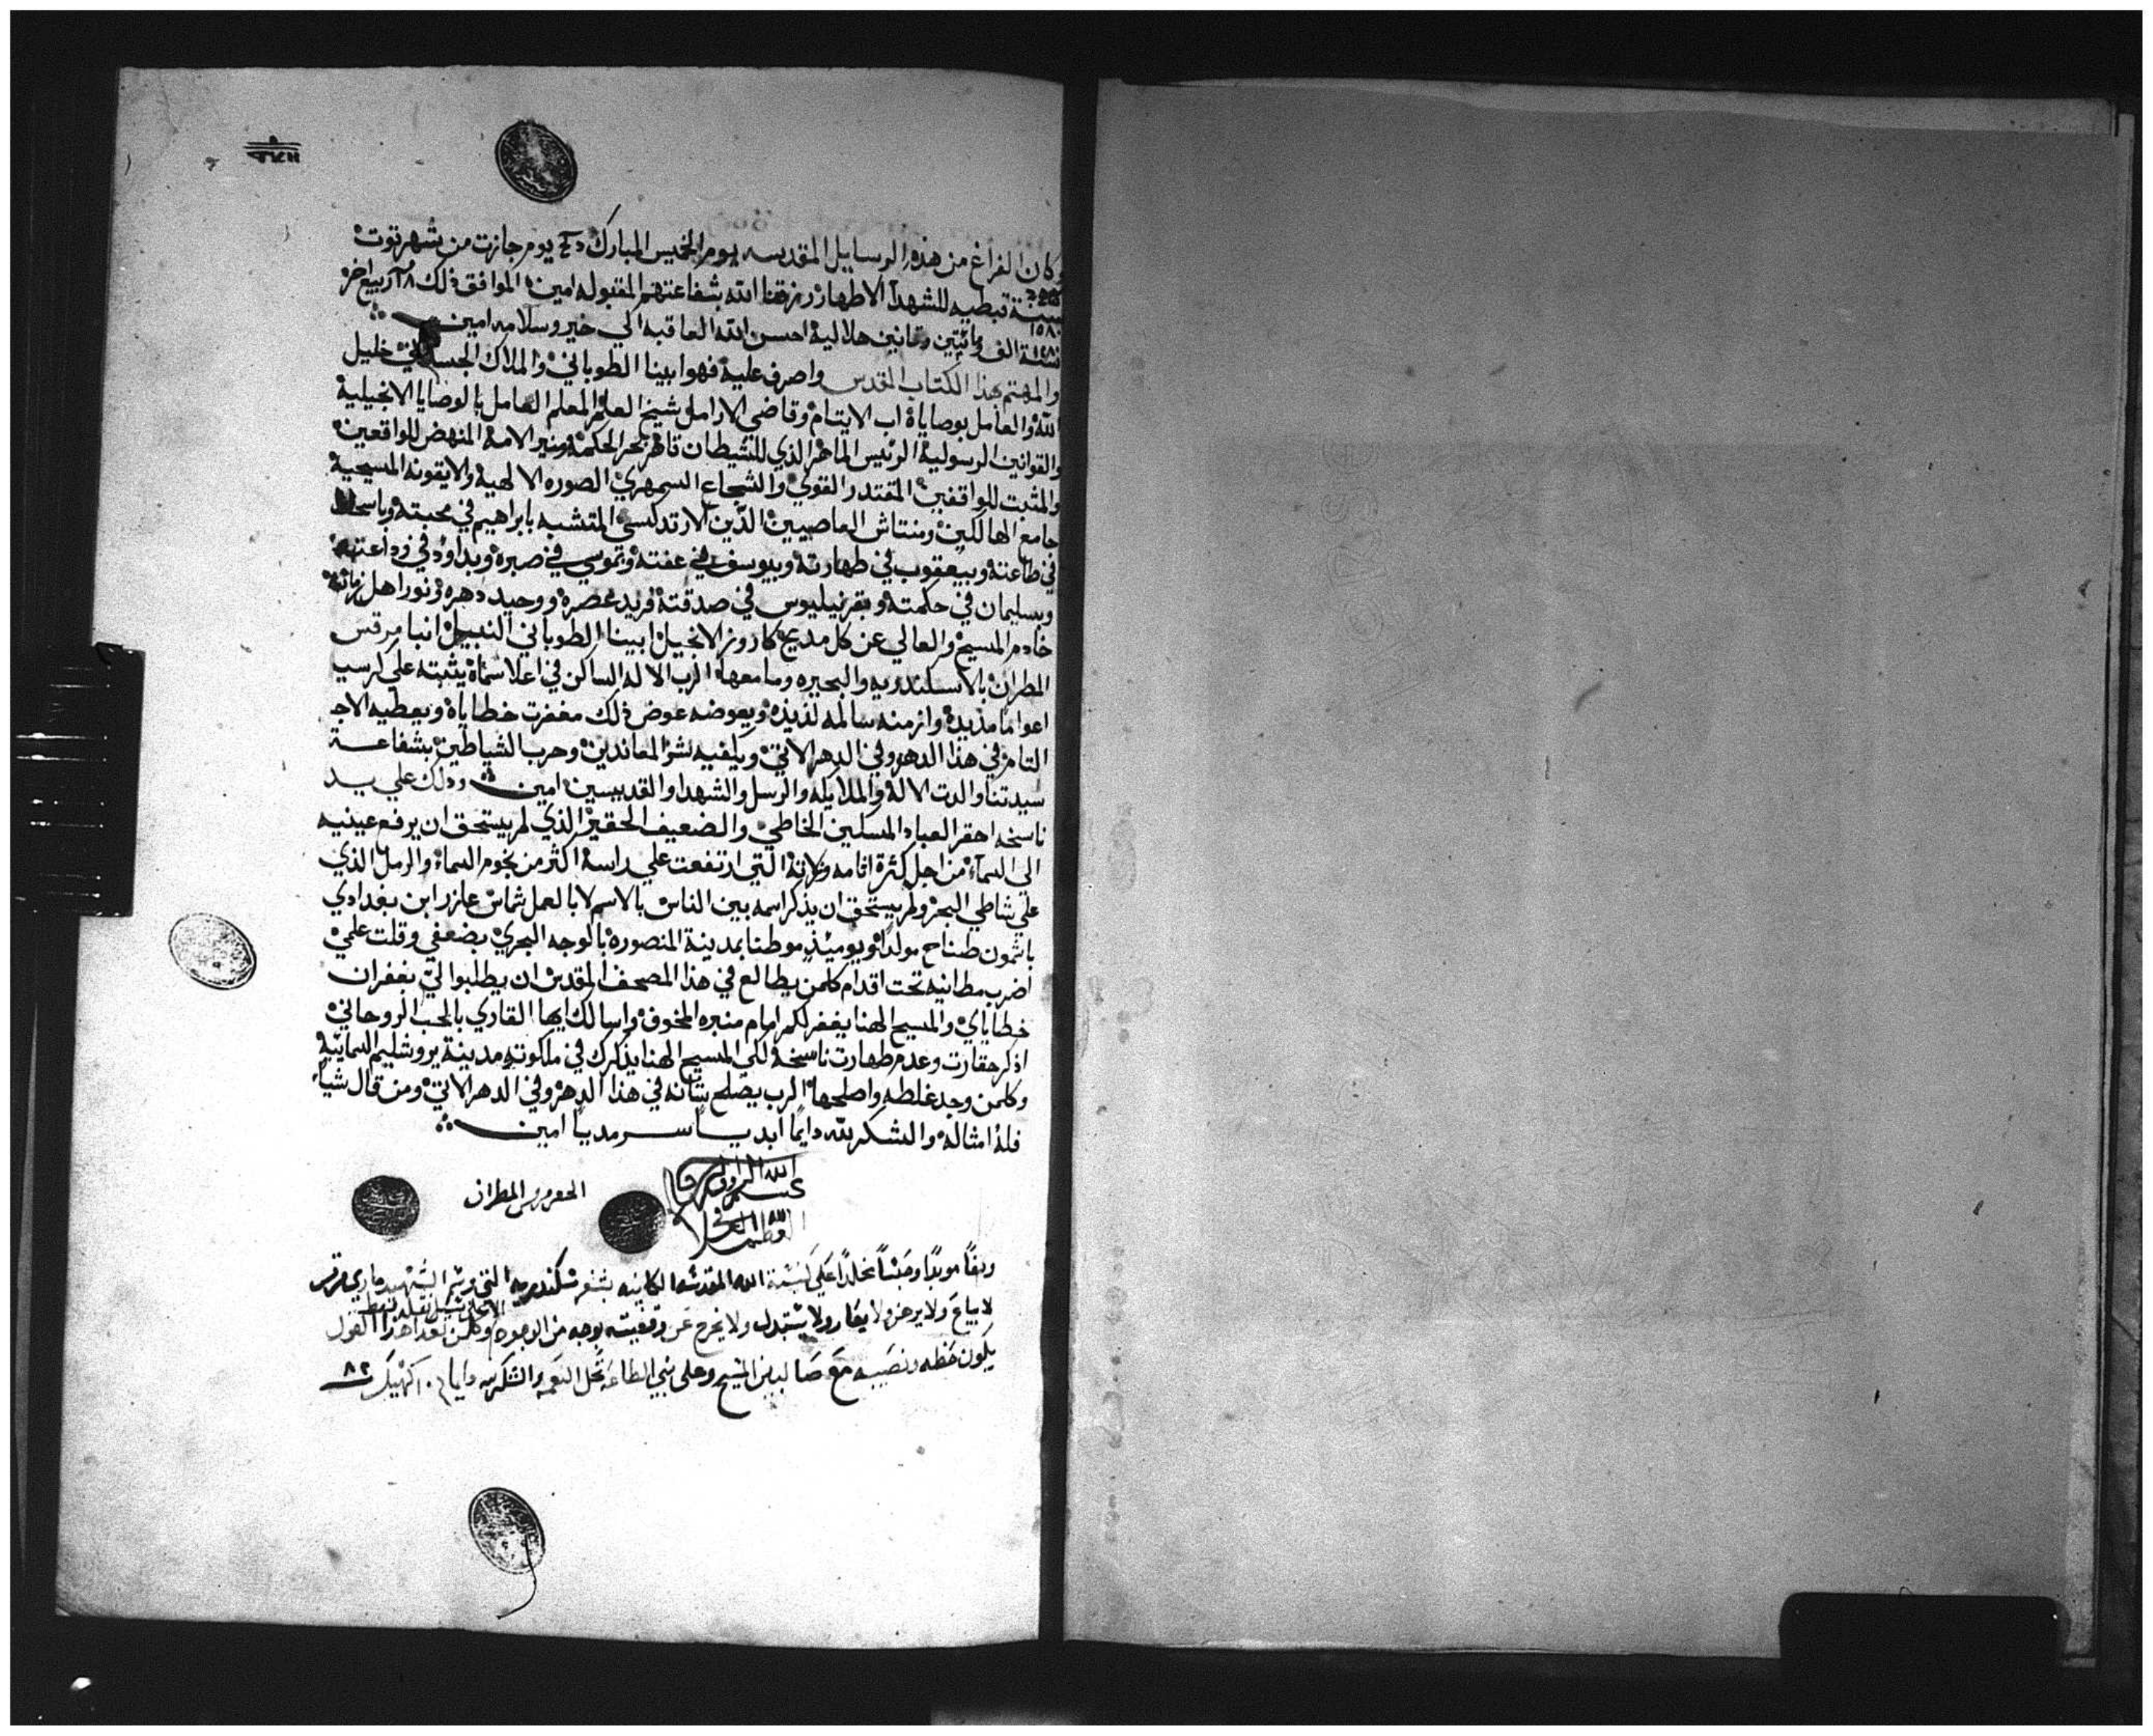 وكان الفراغ من هذه الرسايل المقدسه يوم الخميس المبارك يوم جازت من شهر توت
سنة ١٥٨٠ قبطيه للشهدآ الاطهار رزقنا الله بشفاعتهم المقبوله امين الموافق ذلك ربيع اخر
سنة ١٢٨٠ الف ومائتين وثمانين هلالية احسن الله العاقبه الي خير وسلامه امين
والمهتم بهذا الكتاب المقدس واصرف علية فهو ابينا الطوباني والملاك الجسداني خليل
الله والعامل بوصاياة اب الايتام وقاضي الارامل شيخ العلم المعلم العامل بالوصايا الانجيلية
والقوانين الرسولية الرئيس الماهر الذي للشيطان قاهر بحر الحكمة ومنير الامة المنهض للواقعين
والمثبت للواقفين المقتدر القوي والشجاع السمهري الصوره الالهية والايقونه المسيحية
جامع الهالكين ومنتاش العاصيين الدين الارتدكسي المتشبه بابراهيم في محبته وباسحاق
في طاعتة وبيعقوب في طهارتة وبيوسف في عفتة وبموسي في صبرة وبداوود في وداعته
وبسليمان في حكمتة وبقرنيليوس في صدقتة فريد عصره ووحيد دهره ونور اهل زمانة
خادم المسيح والعالي عن كل مديح كاروز الانجيل ابينا الطوباني النبيل انبا مرقس
المطران بالاسكندريه والبحيره ومامعها الرب الاله الساكن في اعلا سماة يثبته علي كرسيه
اعواما مديدة وازمنه سالمه لذيذه ويعوضه عوض ذلك مغفرت خطاياة ويعطيه الاجر
التام في هذا الدهر وفي الدهر الاتي ويكفيه شر المعاندين وحرب الشياطين بشفاعة
سيدتنا والدت الاله والملايكه والرسل والشهدا والقديسين امين وذلك علي يد
ناسخه احقر العباد المسلين الخاطي والضعيف الحقير الذي لم يستحق ان يرفع عينيه
الي السمآء من اجل كثرة اثامه وزلاته التي ارتفعت علي راسة اكثر من نجوم السماء والرمل الذي
علي شاطي البحر ولم يستحق ان يذكر اسمه بين الناس بالاسم لا بالعمل شماس عازر ابن بغدادي
باشمون طناح مولدا ويوميئذ موطنا بمدينة المنصورة بالوجه البحري بضعفي وقلت علمي
اضرب مطانيه تحت اقدام كلمن يطالع في هذا المصحف المقدس ان يطلبوا لي بغفران
خطاياي والمسيح الهنا يغفر لكم امام منبره المخوف واسالك ايها القاري بالحب الروحاني
اذكر حقارت وعدم طهارت ناسخة لكي المسيح الهنا يذكرك في ملكوته مدينة يروشليم السمايية
وكلمن وجد غلطه واصلحها الرب يصلح شانه في هذا الدهر وفي الدهر الاتي ومن قال شياء
فلة امثالة والشكر لله دايما ابديا سرمديا امين
الله الرووف
الحقير مرقس المطران
وقفاً موبداً وحبساً مخلداً علي كنيسة الله المقدسه الكاينه بثغر سكندريه التي برسم الشهيد ماري مرقس
لا يباع ولا يرهن ولا يعار ولا يستبدل ولا يخرج عن وقفيته بوجه من الوجوه وكلمن تعدا هذا القول
يكون حظه ونصيبه مع صالبين المسيح وعلي بني الطاعه تحل النعمه والشكر لله دايما كيهك